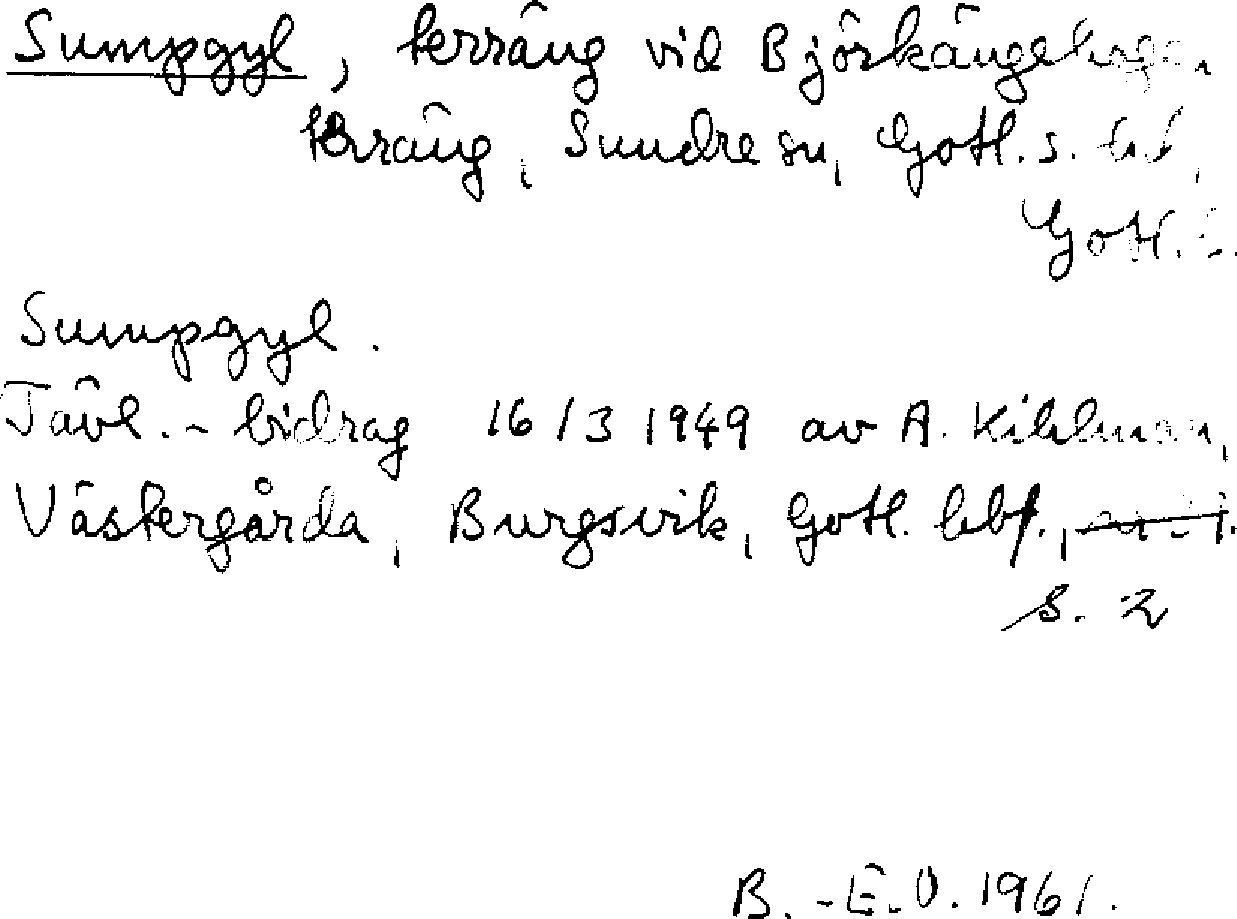 Sumpgyl, terräng vid Björkängehagen
terräng, Sundre sn, Gotl. s. hd,
Gotl. l.
Sumpgyl.
Tävl.-bidrag 16/3 1949 av A. Kihlman,
Västergårda, Burgsvik, Gotl. bbf.,
s. 2
B.-E.O. 1961.